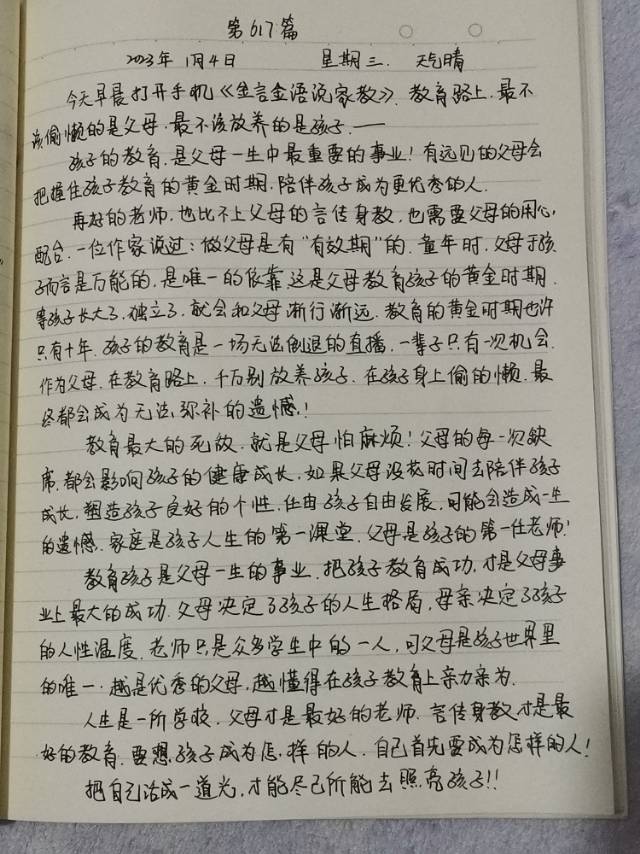 第617篇
2023年 1月4日 星期三. 天气晴
今天早晨打开手机《金言金语说家教》. 教育路上. 最不
该偷懒的是父母. 最不该放养的是孩子. ——
孩子的教育. 是父母一生中最重要的事业! 有远见的父母会
把握住孩子教育的黄金时期. 陪伴孩子成为更优秀的人.
再好的老师. 也比不上父母的言传身教. 也需要父母的用心.
配合. 一位作家说过: 做父母是有"有效期"的. 童年时. 父母于孩
子而言是万能的. 是唯一的依靠. 这是父母教育孩子的黄金时期.
等孩子长大了. 独立了. 就会和父母渐行渐远. 教育的黄金时期也许
只有十年. 孩子的教育是一场无法倒退的直播. 一辈子只有一次机会.
作为父母. 在教育路上. 千万别放养孩子. 在孩子身上偷的懒. 最
终都会成为无法弥补的遗憾!
教育最大的死敌. 就是父母怕麻烦! 父母的每一次缺
席. 都会影响孩子的健康成长. 如果父母没花时间去陪伴孩子
成长. 塑造孩子良好的个性. 任由孩子自由发展. 可能会造成一生
的遗憾. 家庭是孩子人生的第一课堂. 父母是孩子的第一任老师!
教育孩子是父母一生的事业. 把孩子教育成功. 才是父母事
业上最大的成功. 父母决定了孩子的人生格局, 母亲决定了孩子
的人性温度. 老师只是众多学生中的一人, 可父母是孩子世界里
的唯一. 越是优秀的父母. 越懂得在孩子教育上亲力亲为.
人生是一所学校. 父母才是最好的老师. 言传身教. 才是最
好的教育. 要想孩子成为怎样的人. 自己首先要成为怎样的人!
把自己活成一道光. 才能尽己所能去照亮孩子!!